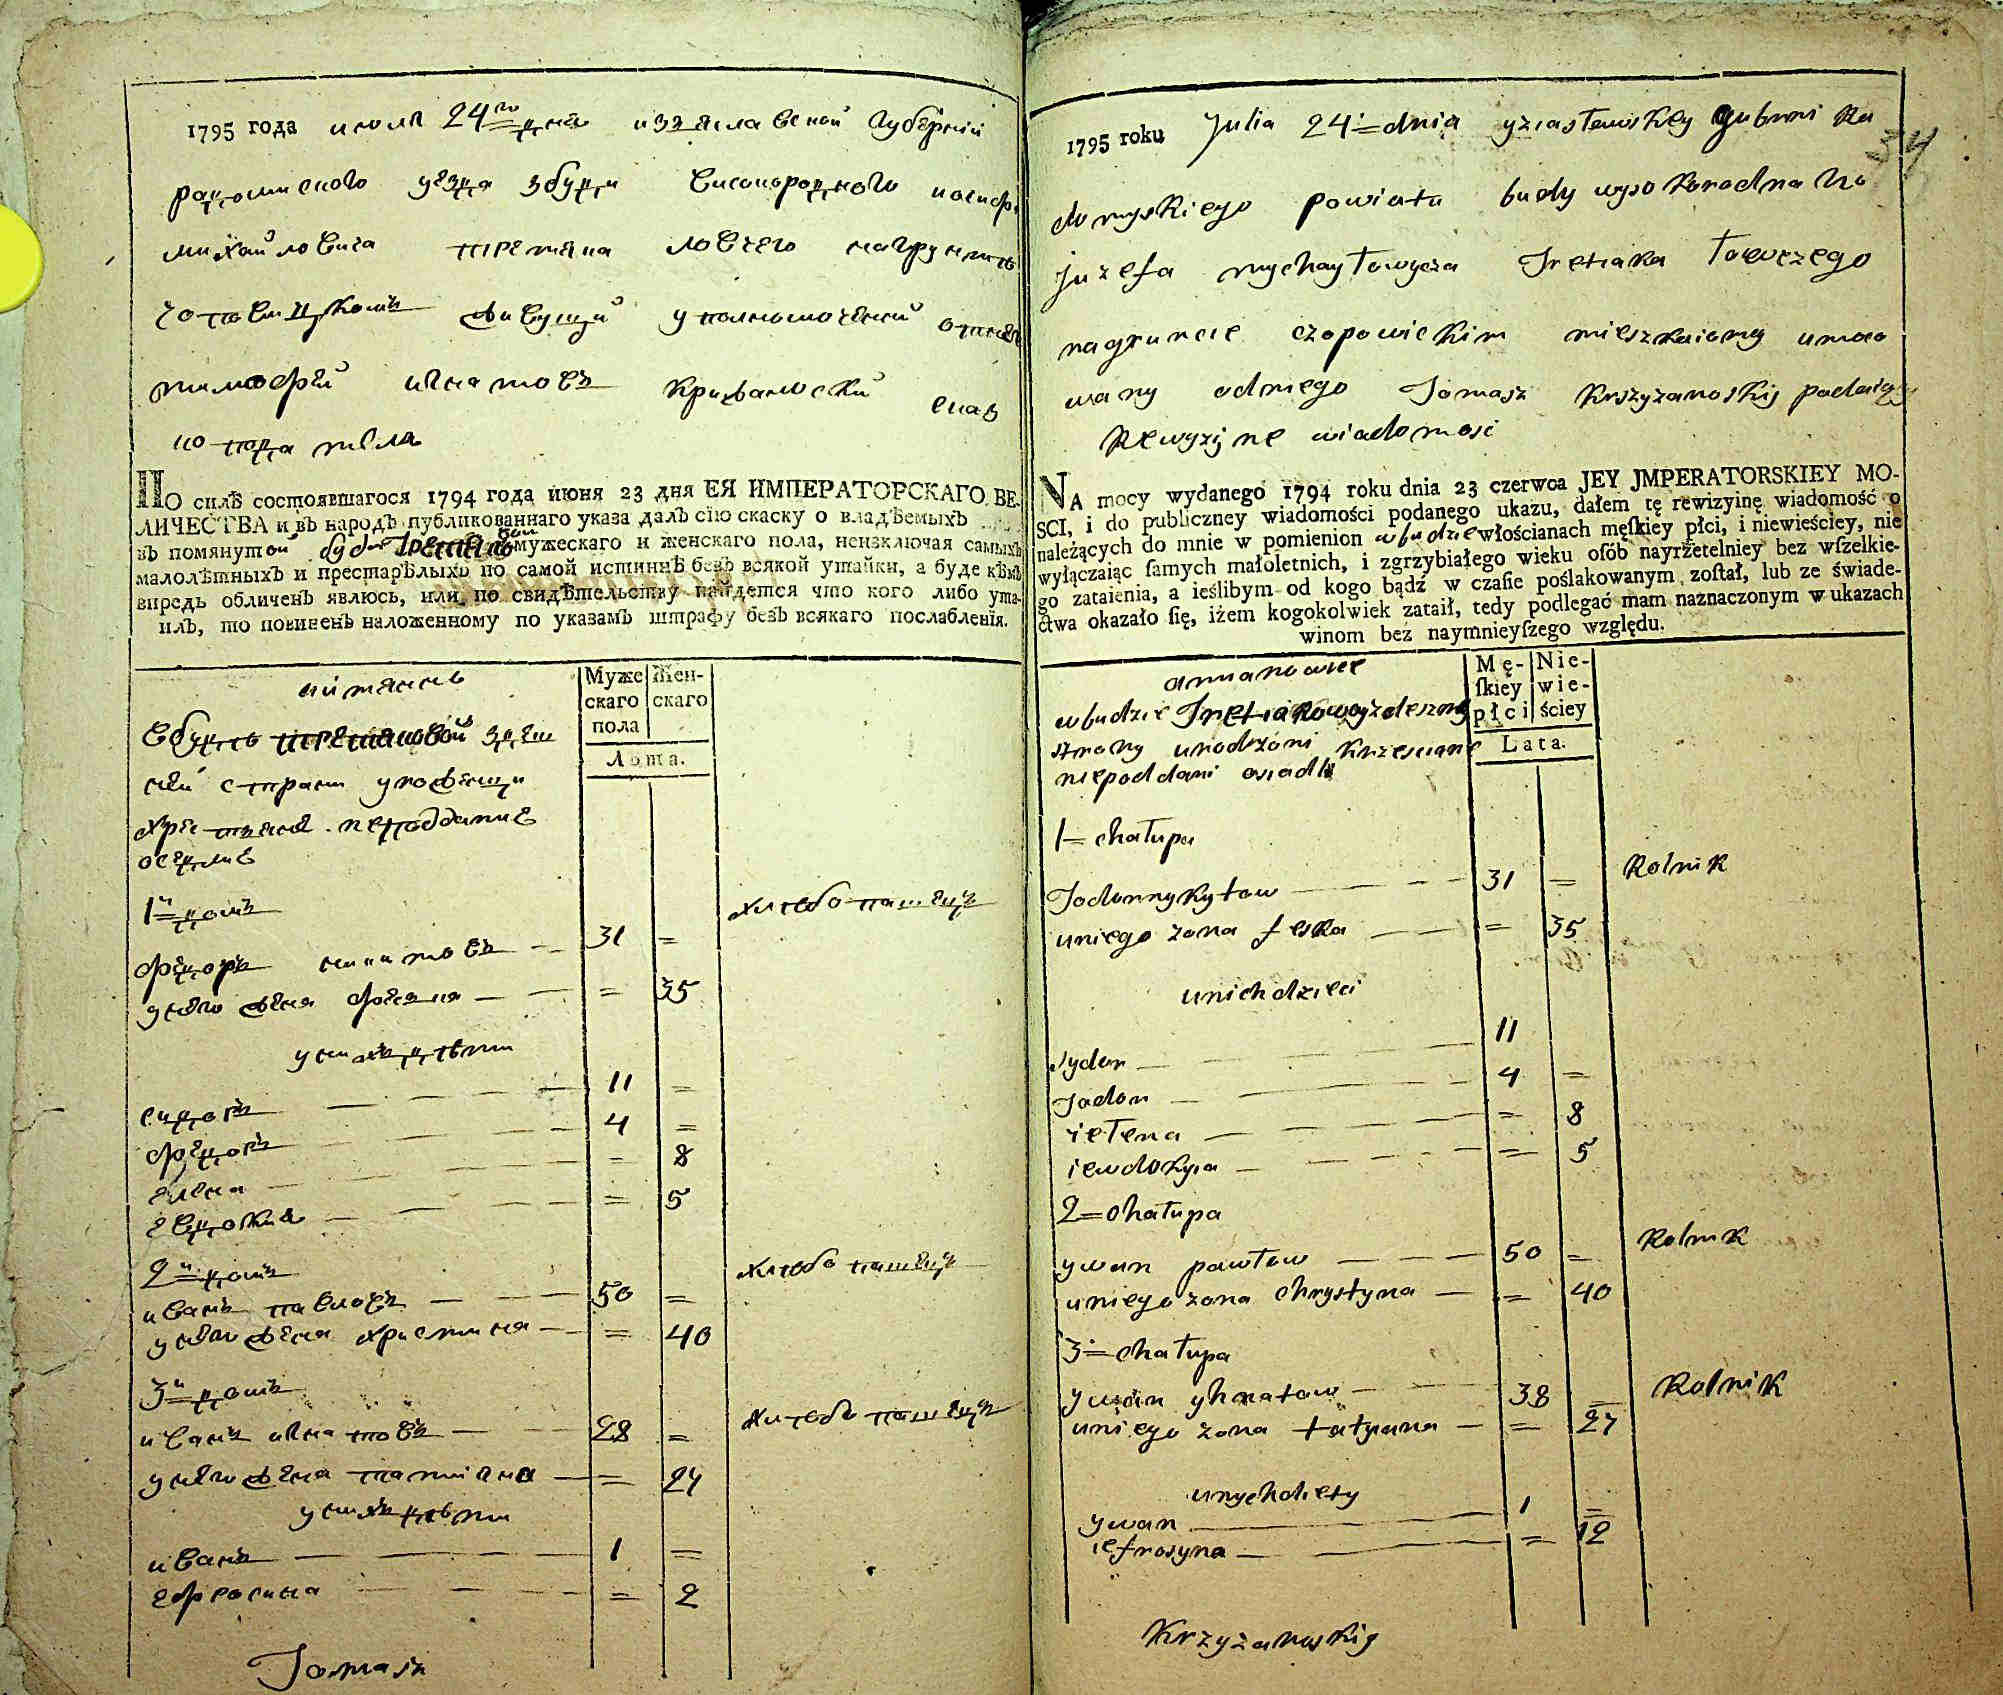 1795 года июля 24го дня изяславской губернии
радомиского уезда збуди високородного иосифа
михайловича третяка ловчего нагрунтъ
чоповицкомъ живущий уполномочений отнего
тимофей игнатовъ крижановский
подателя
ПО силѣ состоявшагося 1794 года июня 23 дня ЕЯ ИМПЕРАТОРСКАГО ВЕ-
ЛИЧЕСТВА и въ народъ публикованнаго указа далъ сію скаску о владѣемыхъ
въ помянутой буде мужескаго и женскаго пола, неизключая самыхъ
малолѣтныхъ и престарѣлыхъ по самой истиннѣ безъ всякой утайки, а буде кѣмъ
впредь обличенъ явлюсь, или по свидѣтельству найдется что кого либо ута-
илъ, то повиненъ наложенному по указамъ штрафу безъ всякаго послабленія.
Муже Жен-
скаго скаго
пола
Лѣта.
вбудѣ третяковой здеш
ней страни урожденци
християне неподдание
оседлие
1й домъ
хлебопашецъ
федоръ никитовъ 31 =
унего жена феська = 35
унихъ дѣти
сидоръ 11 =
федоръ 4 =
елена = 8
евдокия = 5
2й домъ
хлебопашецъ
иванъ павловъ 50 =
унего жена христина = 40
3й домъ
хлебопашецъ
иванъ игнатовъ 28 =
унего жена татияна = 27
унихъ дѣти
иванъ 1 =
ефросина = 2
Tomasz
34
1795 roku Julia 24 dnia yziasławskey gubrni Ra
domyskiego powiatu budy wysokorodnaho
juzefa mychayłowycza Tretiaka łowczego
nagruncie czopowickim mieszkaiomy umoco
wany odniego Tomasz Krszyżanoskij podaięy
Rewyzijne wiadomosc
NA mocy wydanego 1794 roku dnia 23 czerwca JEY JMPERATORSKIEY MO-
SCI, i do publiczney wiadomości podanego ukazu, dałem tę rewizyinę wiadomość o
należących do mnie w pomienion wbudzie włościanach męſkiey płci, i niewieściey, nie
wyłączaiąc ſamych małoletnich, i zgrzybiałego wieku oſób nayrzetelniey bez wſzelkie-
go zataienia, a ieślibym od kogo bądź w czaſie poślakowanym zoſtał, lub ze świade-
ctwa okazało ſię, iżem kogokolwiek zataił, tedy podlegać mam naznaczonym w ukazach
winom bez naymnieyſzego względu.
Mę- Nie-
ſkiey wie-
płci ściey
Lata.
amianowicie
wbudzie Tretiakowoy zdeszney
strony urodzoni Krzescianie
niepoddani osiadli
1 chałupa
Rolnik
Fedor nykytow 31 =
uniego zona feska = 35
unich dzieci
sydor 11
Fedor 4 =
iełena = 8
iewdokyia = 5
2 chałupa
Rolnik
ywan pawłow 50 =
uniego zona chrystyna = 40
3 chałupa
Rolnik
ywan yhnatow 38 =
uniego zona tatyana = 27
unych diety
ywan 1 =
iefrosyna = 12
Krzyżanoskiy